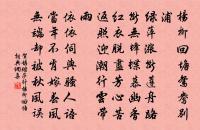 楊柳回塘鴛鴦別
浦
綠萍漲斷蓮舟路
斷無蜂蝶慕幽香
紅衣脫盡芳心苦
返照迎潮行雲帶
雨
依依似與騷人語
當年不肯嫁春風
無端卻被秋風誤
賀鑄踏莎行楊柳回塘